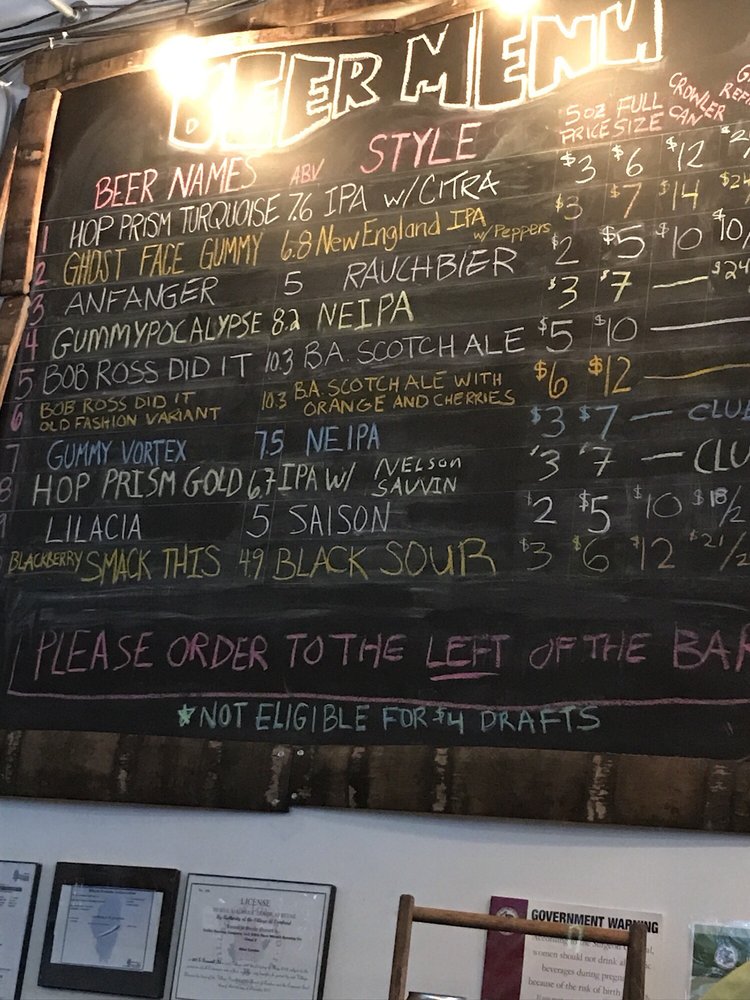 BEER MENU
BEER NAMES ABV STYLE 5oz PRICE FULL SIZE CROWLER CAN
1 HOP PRISM TURQUOISE 7.6 IPA w/ CITRA $3 $6 $12
2 GHOST FACE GUMMY 6.8 New England IPA w/ Peppers $3 $7 $14 $24
3 ANFANGER 5 RAUCHBIER $2 $5 $10 $10/
4 GUMMYPOCALYPSE 8.2 NEIPA $3 $7 — $24
5 BOB ROSS DID IT 10.3 B.A. SCOTCH ALE $5 $10 —
6 BOB ROSS DID IT OLD FASHION VARIANT 10.3 B.A. SCOTCH ALE WITH ORANGE AND CHERRIES $6 $12 —
7 GUMMY VORTEX 7.5 NEIPA $3 $7 — CLU
8 HOP PRISM GOLD 6.7 IPA W/ NELSON SAUVIN $3 $7 — CLU
9 LILACIA 5 SAISON $2 $5 $10 $18/2
BLACKBERRY SMACK THIS 4.9 BLACK SOUR $3 $6 $12 $21/2
PLEASE ORDER TO THE LEFT OF THE BAR
*NOT ELIGIBLE FOR $4 DRAFTS
LICENSE
GOVERNMENT WARNING
According to the Surgeon
women should not drink
beverages during
because of the risk of birth